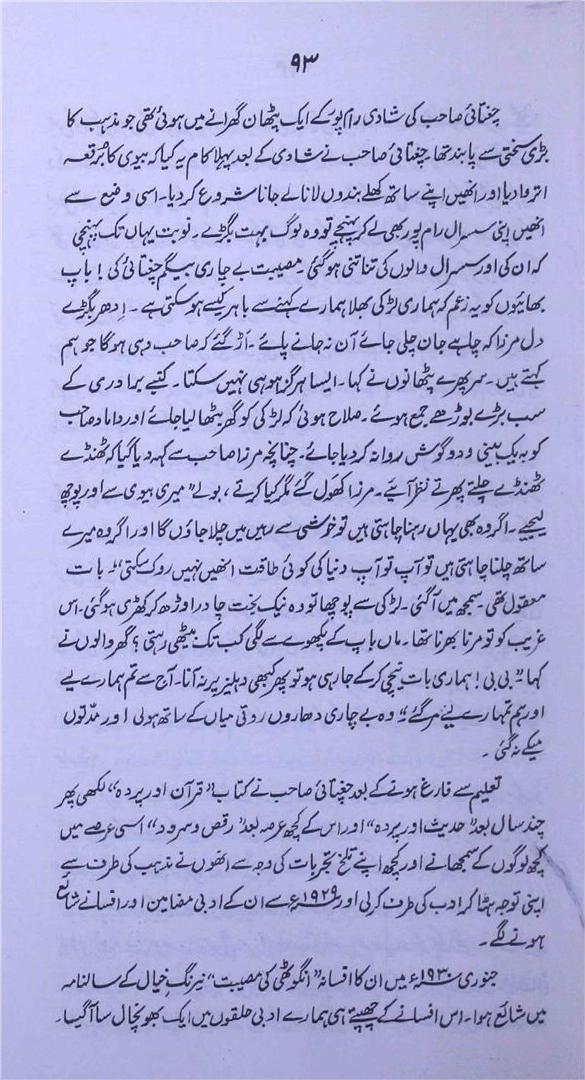 ۹۳
چغتائی صاحب کی شادی رام پور کے ایک پٹھان گھرانے میں ہوئی تھی جو مذہب کا
بڑی سختی سے پابند تھا۔ چغتائی صاحب نے شادی کے بعد پہلا کام یہ کیا کہ بیوی کا بُرقعہ
اتروا دیا اور انھیں اپنے ساتھ کھلے بندوں لانا لے جانا شروع کر دیا۔ اسی وضع سے
انھیں اپنی سسرال رام پور بھی لے کر پہنچے تو وہ لوگ بہت بگڑے۔ نوبت یہاں تک پہنچی
کہ ان کی اور سسرال والوں کی تناتنی ہو گئی۔ مصیبت بے چاری بیگم چغتائی کی! باپ
بھائیوں کو یہ زعم کہ ہماری لڑکی بھلا ہمارے کہنے سے باہر کیسے ہو سکتی ہے۔ اِدھر بگڑے
دل مرزا کہ چاہے جان چلی جائے آن نہ جانے پائے۔ اَڑ گئے کہ صاحب وہی ہو گا جو ہم
کہتے ہیں۔ سر پھرے پٹھانوں نے کہا۔ ایسا ہرگز ہو ہی نہیں سکتا۔ کنبے برادری کے
سب بڑے بوڑھے جمع ہوئے۔ صلاح ہوئی کہ لڑکی کو گھر بٹھا لیا جائے اور داماد صاحب
کو بہ یک بینی و دو گوش روانہ کر دیا جائے۔ چنانچہ مرزا صاحب سے کہہ دیا گیا کہ ٹھنڈے
ٹھنڈے چلتے پھرتے نظر آیئے۔ مرزا کھَول گئے مگر کیا کرتے، بولے "میری بیوی سے اور پوچھ
لیجیے۔ اگر وہ بھی یہاں رہنا چاہتی ہیں تو خوشی سے رہیں میں چلا جاؤں گا اور اگر وہ میرے
ساتھ چلنا چاہتی ہیں تو آپ تو آپ دنیا کی کوئی طاقت انھیں نہیں روک سکتی"۔ بات
معقول تھی۔ سمجھ میں آ گئی۔ لڑکی سے پوچھا تو وہ نیک بخت چادر اوڑھ کر کھڑی ہو گئی۔ اس
غریب کو تو مرنا بھرنا تھا۔ ماں باپ کے پکھوے سے لگی کب تک بیٹھی رہتی؟ گھر والوں نے
کہا "بی بی! ہماری بات نیچی کر کے جا رہی ہو تو پھر کبھی دہلیز پر نہ آنا۔ آج سے تم ہمارے لیے
اور ہم تمہارے لیے مر گئے"۔ وہ بے چاری دھاروں روتی میاں کے ساتھ ہولی اور مدّتوں
میکے نہ گئی۔
تعلیم سے فارغ ہونے کے بعد چغتائی صاحب نے کتاب "قرآن اور پردہ" لکھی پھر
چند سال بعد "حدیث اور پردہ" اور اس کے کچھ عرصہ بعد "رقص و سرود" اسی عرصے میں
کچھ لوگوں کے سمجھانے اور کچھ اپنے تلخ تجربات کی وجہ سے انھوں نے مذہب کی طرف سے
اپنی توجہ ہٹا کر ادب کی طرف کر لی اور ۱۹۲۹ء سے ان کے ادبی مضامین اور افسانے شائع
ہونے لگے۔
جنوری ۱۹۳۰ء میں ان کا افسانہ "انگوٹھی کی مصیبت" نیرنگِ خیال کے سالنامہ
میں شائع ہوا۔ اس افسانے کے چھپتے ہی ہمارے ادبی حلقوں میں ایک بھونچال سا آ گیا۔